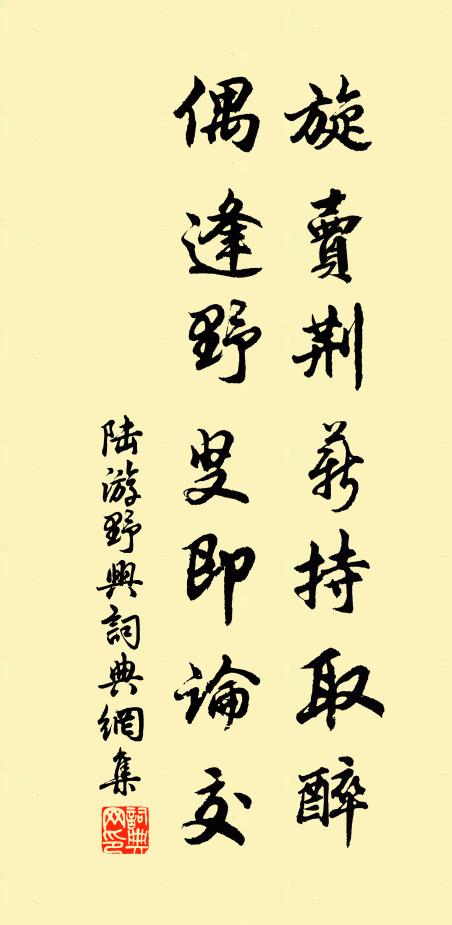 旋賣荆薪持取醉
偶逢野叟即論交
陆游野興詞典網集
詞典网印